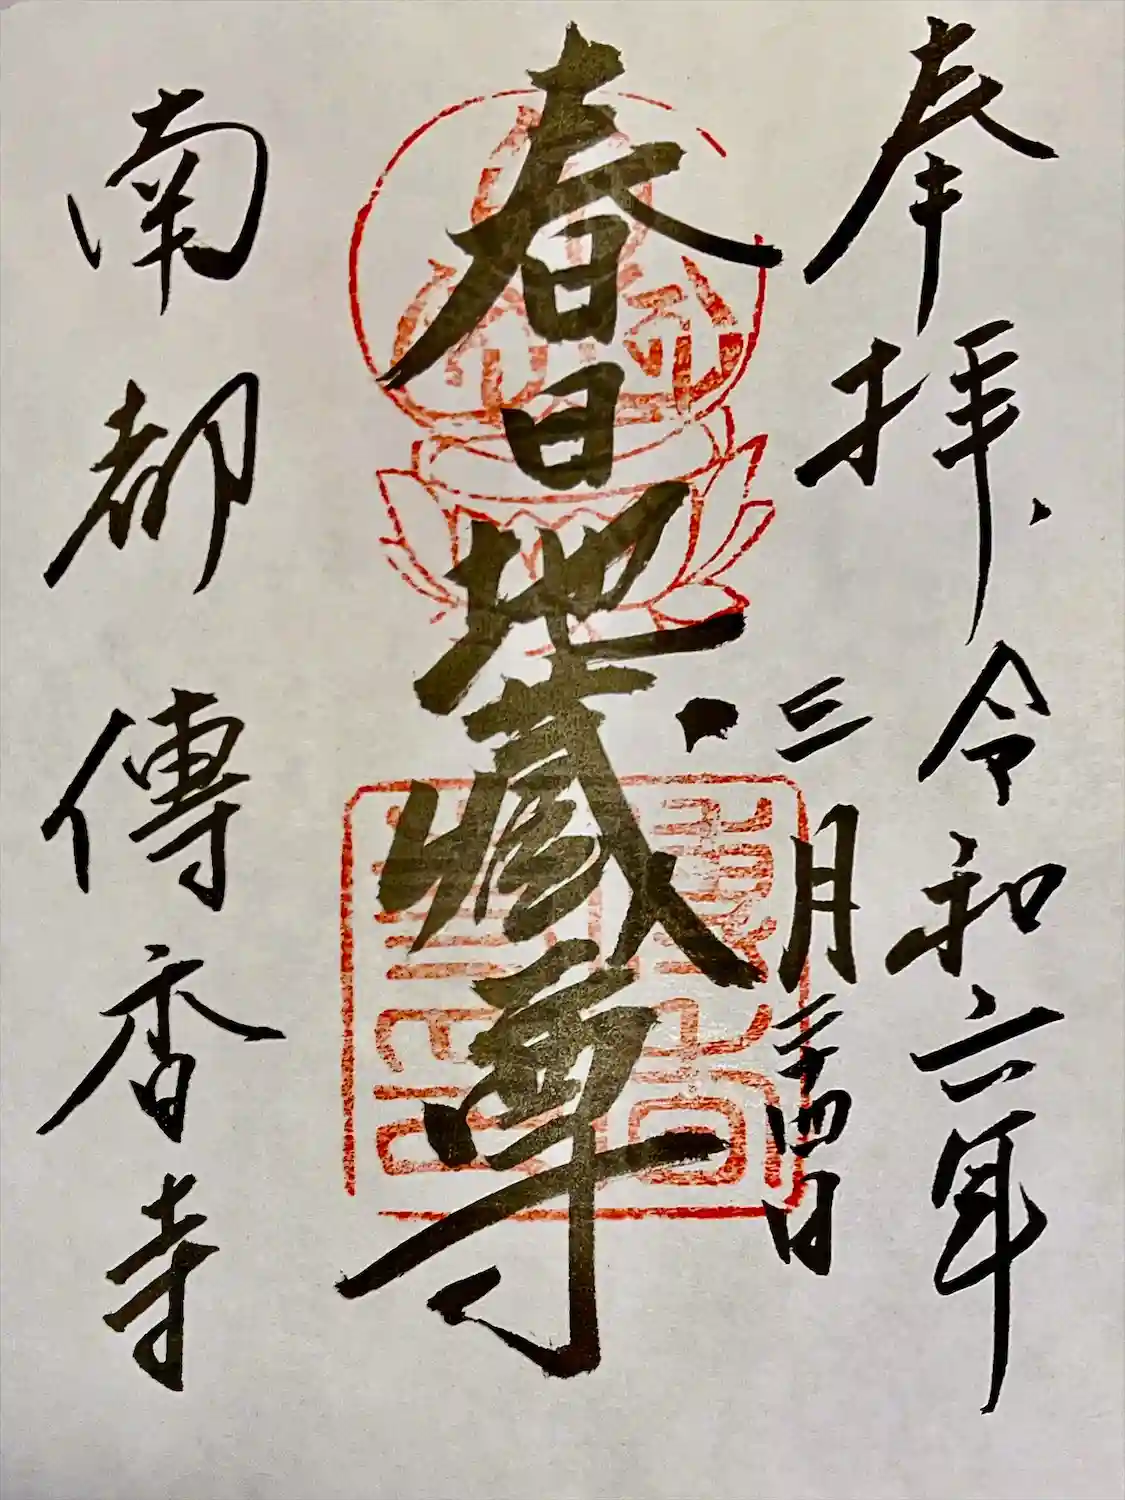 奉拝、令和六年
三月二十四日
春日地蔵尊
南都傳香寺